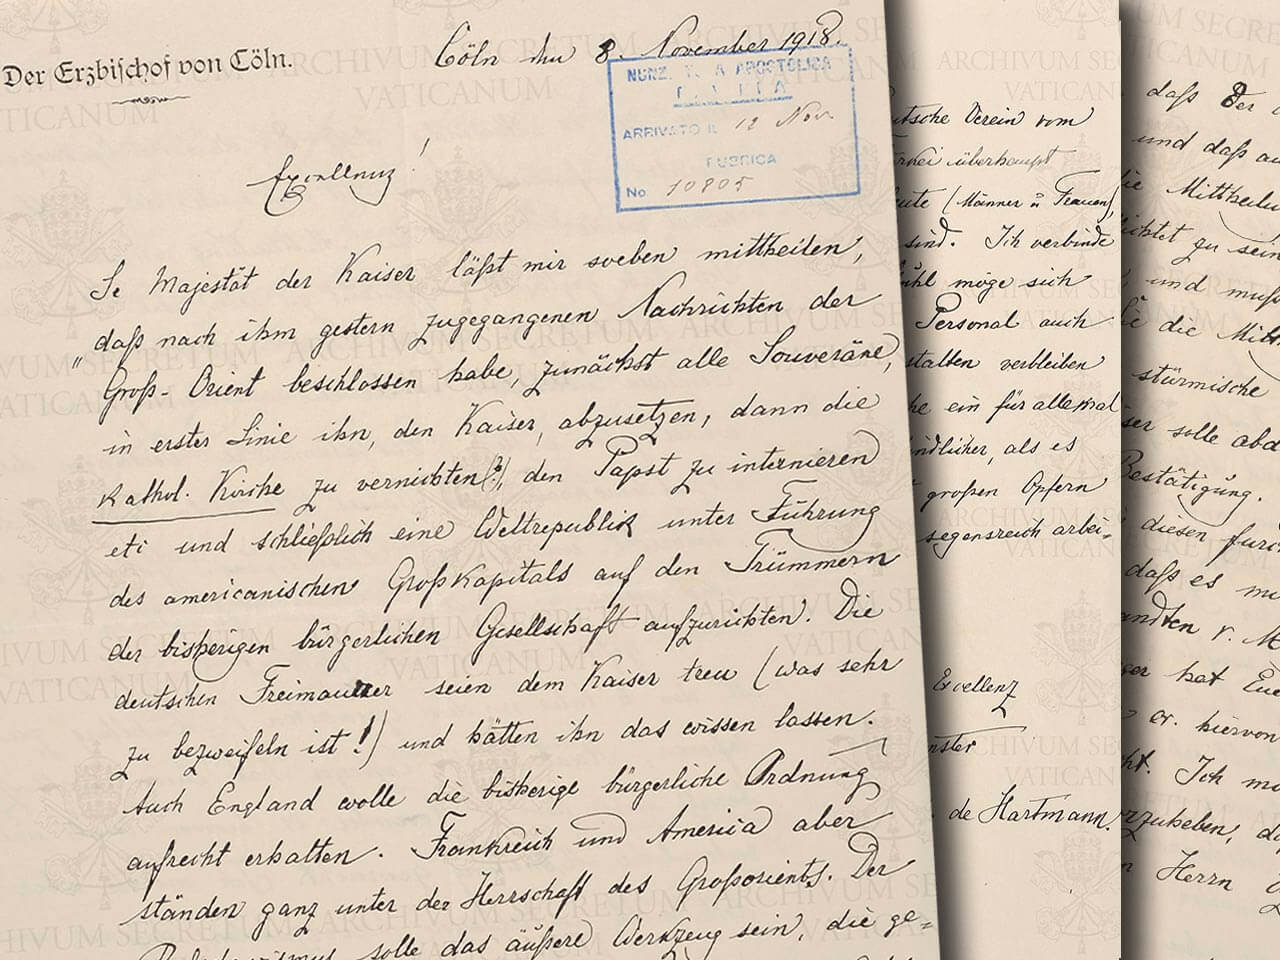 Der Erzbischof von Cöln.
Cöln den 8. November 1918.
NUNZ. APOSTOLICA
ARRIVATO IL 12 Nov.
RUBRICA
No 10805
Excellenz!
Se Majestät der Kaiser läßt mir soeben mittheilen,
"daß nach ihm gestern zugegangenen Nachrichten der
Groß-Orient beschlossen habe, zunächst alle Souveräne,
in erster Linie ihn, den Kaiser, abzusetzen, dann die
kathol. Kirche zu vernichten(?), den Papst zu internieren
etc und schließlich eine Weltrepublik unter Führung
des americanischen Großkapitals auf den Trümmern
der bisherigen bürgerlichen Gesellschaft aufzurichten. Die
deutschen Freimaurer seien dem Kaiser treu (was sehr
zu bezweifeln ist!) und hätten ihn das wissen lassen.
Auch England wolle die bisherige bürgerliche Ordnung
aufrecht erhalten. Frankreich und America aber
ständen ganz unter der Herrschaft des Großorients. Der
solle das äußere Werkzeug sein, die ge=
utsche Verein vom
rkei überhaupt
eute (Männer u Frauen),
sind. Ich verbinde
ühl möge sich
Personal auch
stalten verbleiben
he ein für allemal
ndlicher, als es
großen Opfern
segensreich arbei=
Excellenz
nster
de Hartmann.
daß der
und daß au
die Mittheilu
ichtet zu sein
und muß
Sie die Mitt
stürmische
iser solle abd
Bestätigung.
diesen furc
daß es mi
andten v. M
ger hat Eue
er. hiervon
ht. Ich m
rzuheben, da
n Herrn
ARCHIVUM SECRETUM VATICANUM